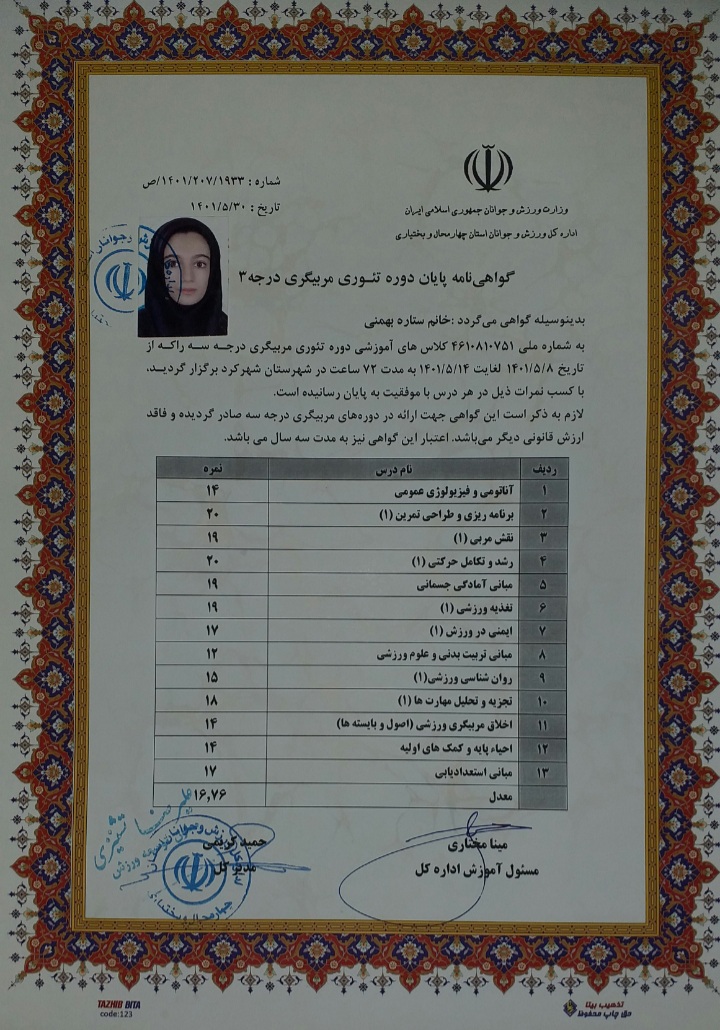 شماره : ۱۴۰۱/۲۰۷/۱۹۳۳/ص
تاریخ : ۱۴۰۱/۵/۳۰
وزارت ورزش و جوانان جمهوری اسلامی ایران
اداره کل ورزش و جوانان استان چهارمحال و بختیاری
گواهی‌نامه پایان دوره تئوری مربیگری درجه۳
بدینوسیله گواهی می‌گردد :خانم ستاره بهمنی
به شماره ملی ۴۶۱۰۸۱۰۷۵۱ کلاس های آموزشی دوره تئوری مربیگری درجه سه راکه از
تاریخ ۱۴۰۱/۵/۸ لغایت ۱۴۰۱/۵/۱۴ به مدت ۷۲ ساعت در شهرستان شهرکرد برگزار گردید،
با کسب نمرات ذیل در هر درس با موفقیت به پایان رسانیده است.
لازم به ذکر است این گواهی جهت ارائه در دوره‌های مربیگری درجه سه صادر گردیده و فاقد
ارزش قانونی دیگر می‌باشد. اعتبار این گواهی نیز به مدت سه سال می باشد.
ردیف نام درس نمره
۱ آناتومی و فیزیولوژی عمومی ۱۴
۲ برنامه ریزی و طراحی تمرین (۱) ۲۰
۳ نقش مربی (۱) ۱۹
۴ رشد و تکامل حرکتی (۱) ۲۰
۵ مبانی آمادگی جسمانی ۱۹
۶ تغذیه ورزشی (۱) ۱۹
۷ ایمنی در ورزش (۱) ۱۷
۸ مبانی تربیت بدنی و علوم ورزشی ۱۲
۹ روان شناسی ورزشی(۱) ۱۵
۱۰ تجزیه و تحلیل مهارت ها (۱) ۱۸
۱۱ اخلاق مربیگری ورزشی (اصول و بایسته ها) ۱۴
۱۲ احیاء پایه و کمک های اولیه ۱۴
۱۳ مبانی استعدادیابی ۱۷
معدل ۱۶,۷۶
مینا مختاری
مسئول آموزش اداره کل
حمید کریمی
مدیر کل
TAZHIB BITA
code:123
تذهیب بیتا
حق چاپ محفوظ